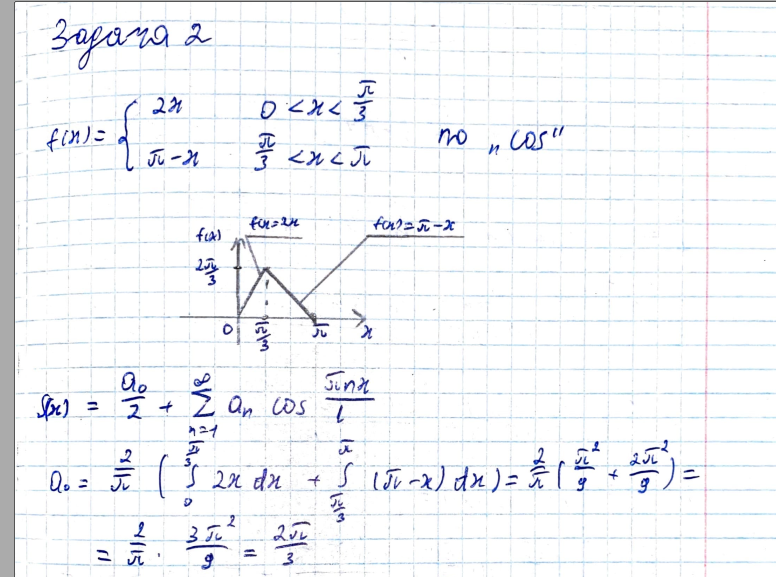 Задача 2
f(x) = { 2x 0 < x < π/3
π - x π/3 < x < π
по "cos"
f(x) f(x)=2x f(x)=π-x
2π/3
0 π/3 π x
f(x) = a₀/2 + ∑_{n=1}^{∞} aₙ cos πnx/l
a₀ = 2/π ( ∫_0^{π/3} 2x dx + ∫_{π/3}^{π} (π-x) dx ) = 2/π ( π²/9 + 2π²/9 ) =
= 2/π · 3π²/9 = 2π/3